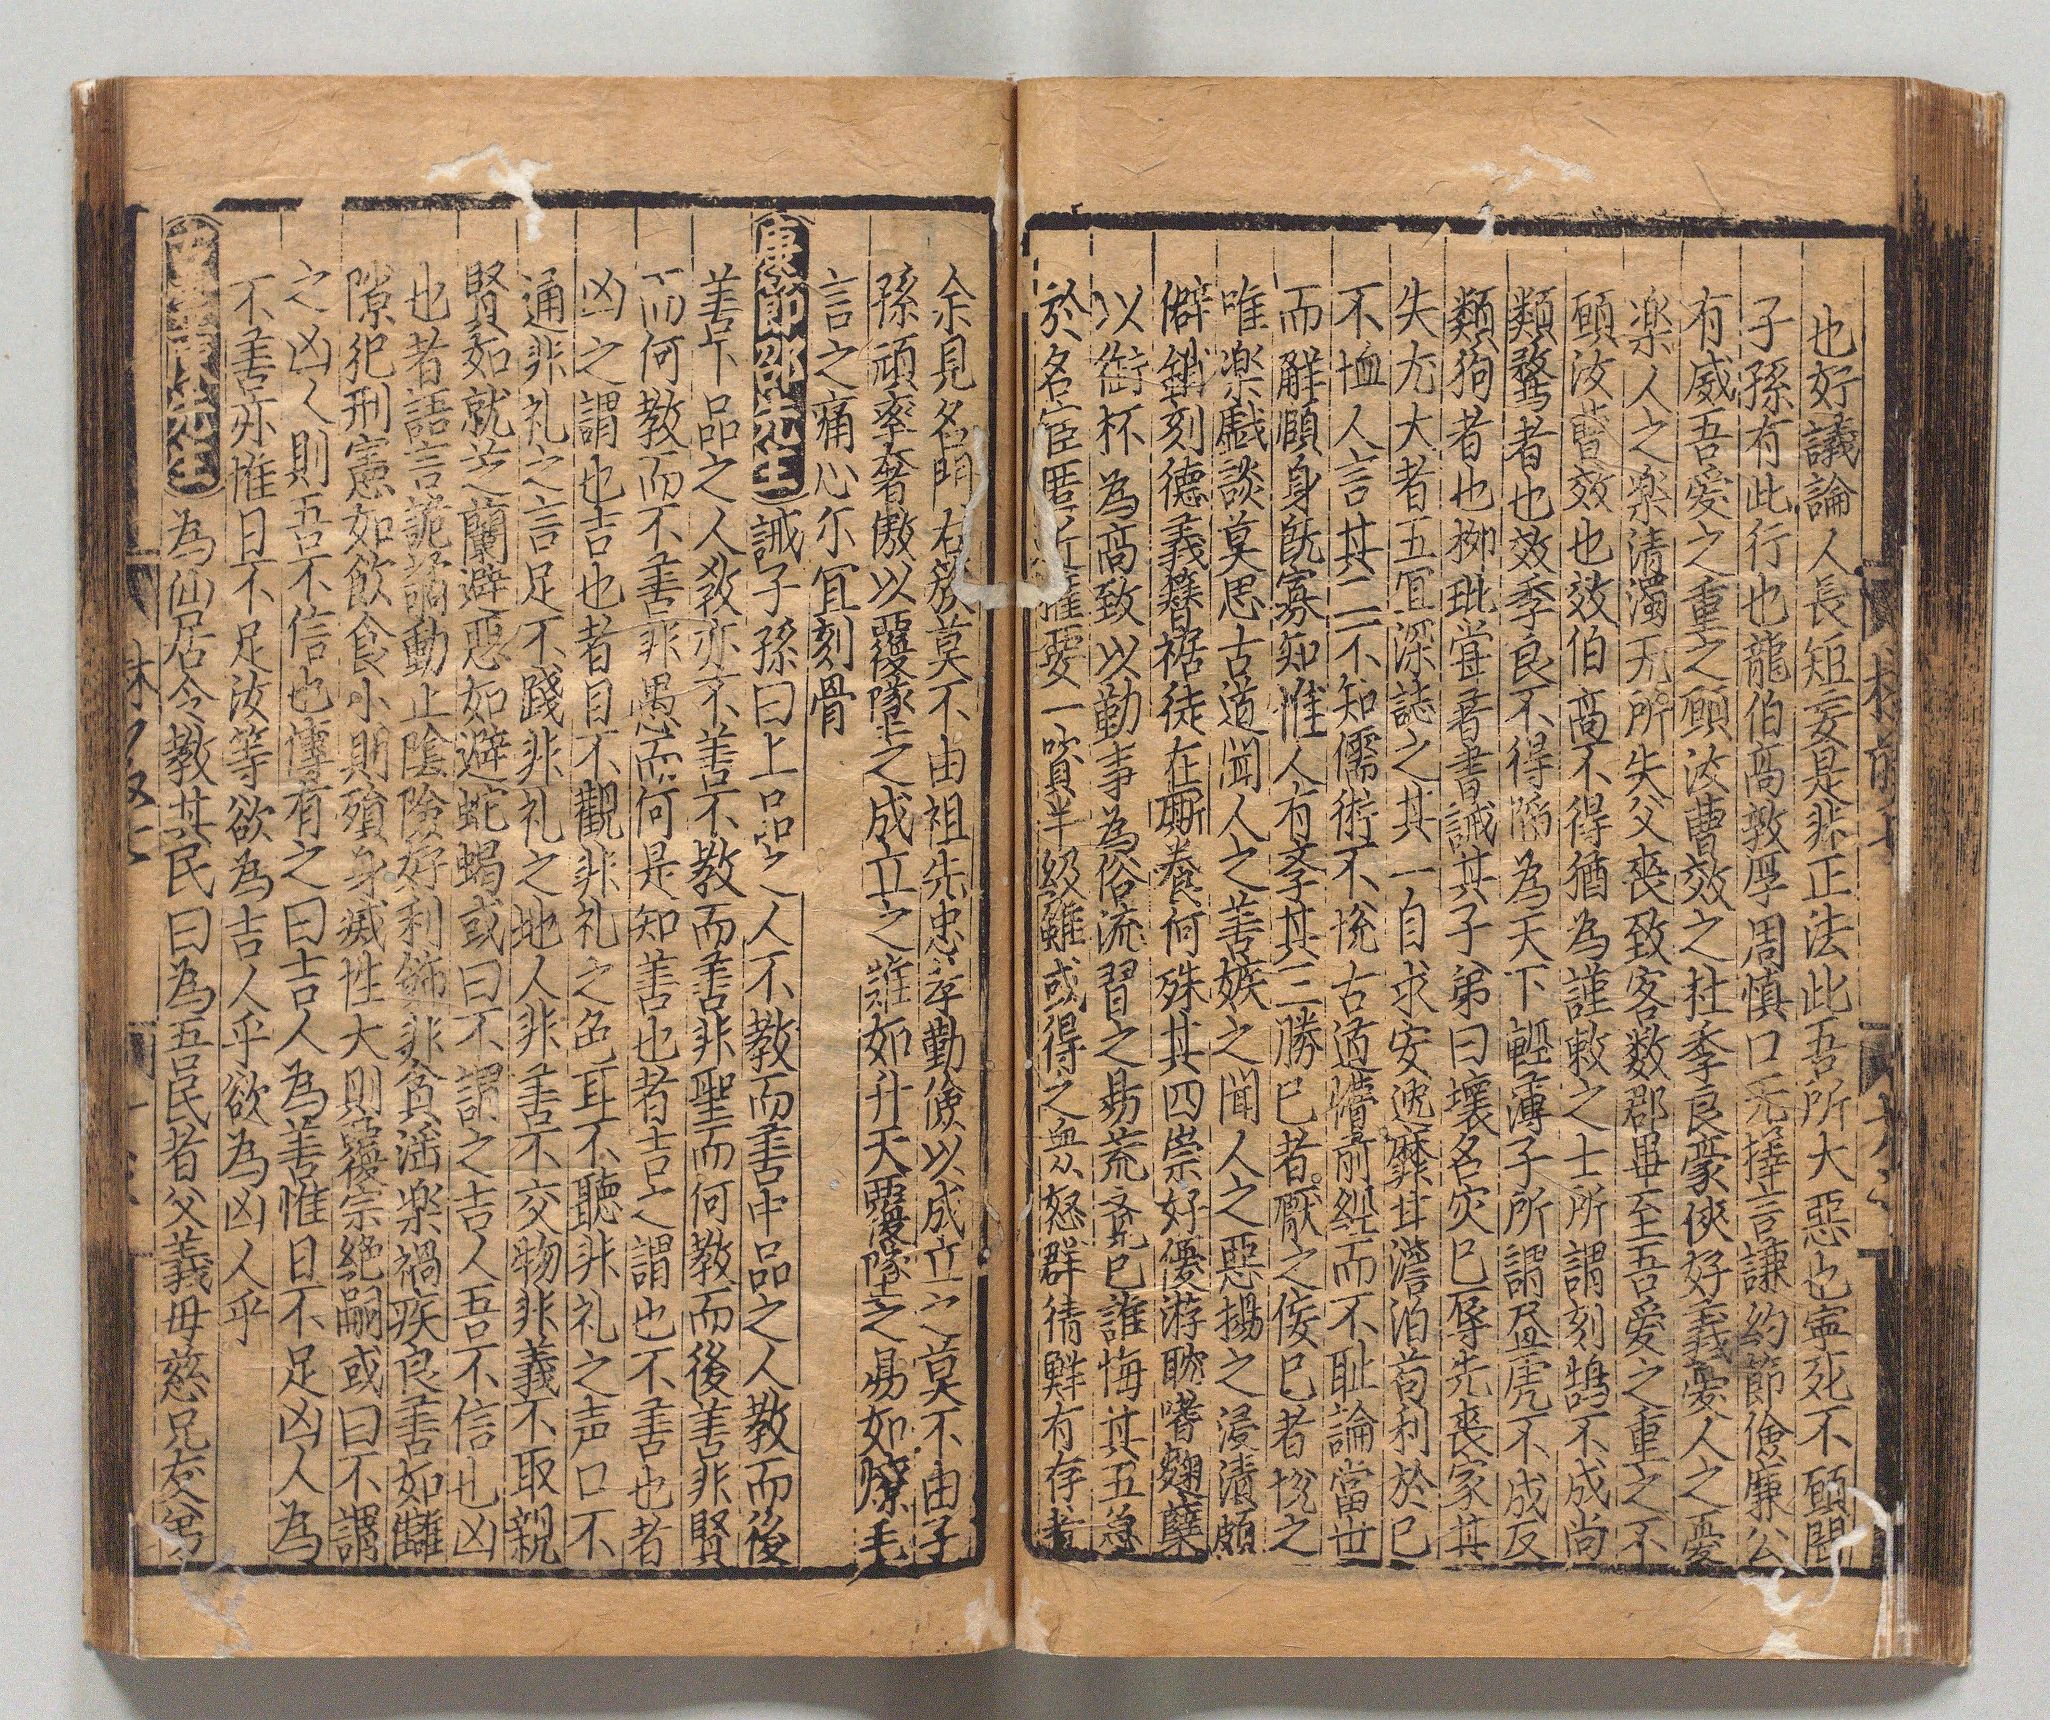 也好議論人長短妄是非正法此吾所大惡也寧死不願聞
子孫有此行也龍伯高敦厚周慎口无擇言謙約節儉廉公
有威吾愛之重之願汝曹效之杜季良豪俠好義憂人之憂
楽人之楽清濁无所失父喪致客数郡畢至吾爱之重之不
願汝曹效也效伯高不得猶為謹敕之士所謂刻鵠不成尚
類鶩者也效季良不得陷為天下輕薄子所謂畫虎不成反
類狗者也柳玭嘗著書誡其子弟曰壞名灾己辱先喪家其
失尤大者五冝深誌之其一自求安逸靡甘澹泊苟利於己
不恤人言其二不知儒術不悅古道懵前經而不耻論當世
而解頤身旣寡知惡人有孝其三勝己者厭之佞己者悅之
唯楽戲談莫思古道聞人之善嫉之聞人之惡揚之浸漬頗
僻銷刻德義簪裾徒在厮養何殊其四崇好優游耽嗜麴糵
以銜杯為高致以勤事為俗流習之易荒覺已誰悔其五急
於名宦匿近權要一資半級雖或得之衆怒群猜鮮有存者
余見名門右族莫不由祖先忠孝勤儉以成立之莫不由子
孫頑率奢傲以覆墜之成立之難如升天覆墜之易如燎毛
言之痛心尔冝刻骨
康節邵先生誡子孫曰上品之人不教而善中品之人教而後
善下品之人教亦不善不教而善非聖而何教而後善非賢
而何教而不善非愚而何是知善也者吉之謂也不善也者
凶之謂也吉也者目不觀非礼之色耳不聽非礼之声口不
通非礼之言足不踐非礼之地人非善不交物非義不取親
賢如就芝蘭避惡如避蛇蝎或曰不謂之吉人吾不信也凶
也者語言詭譎動止陰險好利飾非貪滛楽禍疾良善如讎
隙犯刑憲如飲食小則殞身滅性大則覆宗绝嗣或曰不謂
之凶人則吾不信也傳有之曰吉人為善惟日不足凶人為
不善亦惟日不足汝等欲為吉人乎欲為凶人乎
先生為仙居令教其民曰為吾民者父義毋慈兄友弟